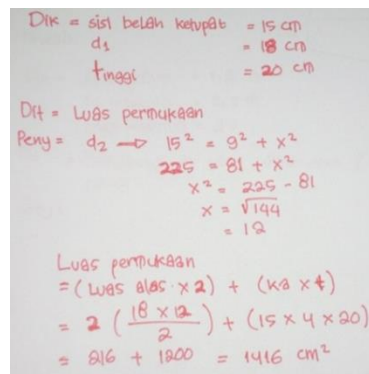 Dik = sisi belah ketupat = 15 cm
d₁ = 18 cm
tinggi = 20 cm
Dit = Luas permukaan
Peny = d₂ → 15² = 9² + x²
225 = 81 + x²
x² = 225 - 81
x = √144
= 12
Luas permukaan
= (Luas alas × 2) + (ka × 4)
= 2 (18 × 12 / 2) + (15 × 4 × 20)
= 216 + 1200 = 1416 cm²